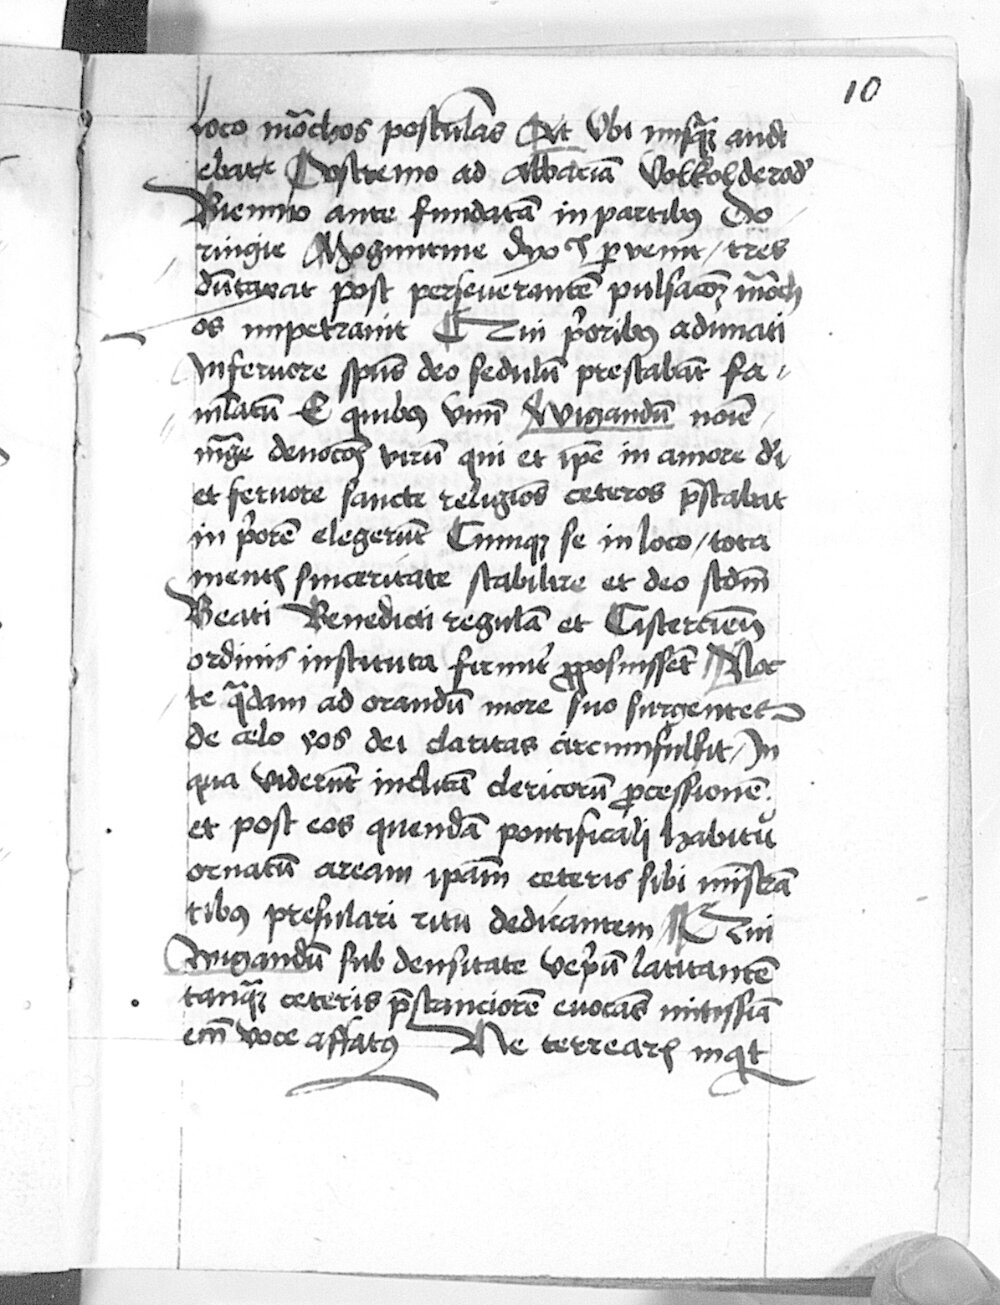 10
loco mōchos postulās Et Ubi nusq̄ȝ audi
ebatr Postremo ad abbatiā Volkolderod'
Biennio ante fundatā in partibꝰ Do
ringie Mogūntine dyoc̄ ꝑvenit / tres
dūtaxat post perseverantē pulsacōȝ mōch
os impetravit Qui p̄oribꝰ adunati
In fervore sp̄us deo sedulū prestabāt fa
mlatū E quibꝰ vnū Wigandū noīe
mḡe devocōis virū qui et ip̄e in amore dī
et fervore sancte religiois ceteros p̄stabat
in p̄orē elegerūt Cumqȝ se in loco / tota
mentis sinceritate stabilire et deo scdm̄
Beati Benedicti regulā et Cistercieñ
ordinis instituta firmit' ꝓposuissēt Noc
te q̄dam ad orandū more suo surgentes
de celo eos dei claritas circumfulsit / In
qua viderūt inclitā clericorū ꝓcessionē
et post eos quendā pontificali habitu
ornatū aream ipām ceteris sibi mīstrā
tibꝰ presulari ritu dedicantem Qui
Wigandū sub densitate vep̄ū latitantē
tanq̄ȝ ceteris p̄stanciorē evocās mitissīa
eū voce affatꝰ Ne terrearis inqt